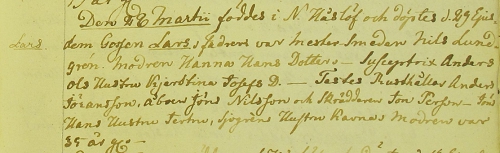 Den 28 Martii föddes i N. Håslöf och döptes d. 29 Ejus=
Lars. dem Gossen Lars, fadren var Mester Smeden Nils Lund=
grén. Modren Hanna Hans Dotter. – Susceptrix Anders
Ols Hustru Kjerstina Josefs D. – Testes Rusthållar Anders
Jöransson, Åboen Jöns Nilsson och Skräddaren Jon Persson –
Hans Hustru Hustru Modren var
35 år g: –